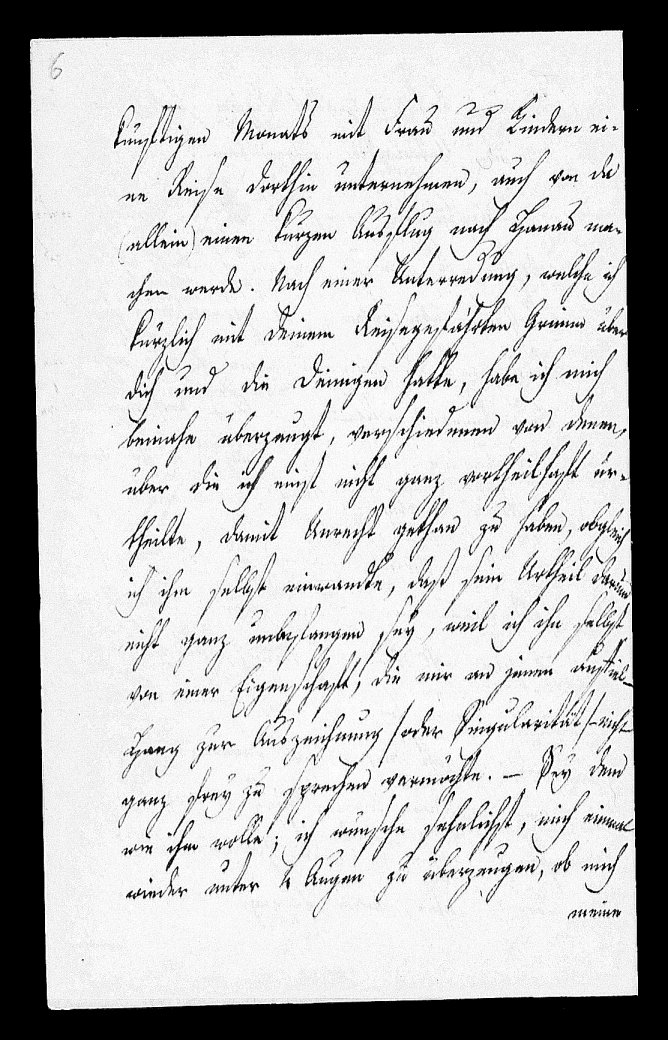 6
künftigen Monats mit Frau und Kindern ei-
ne Reise dorthin unternehmen, auch von da
(allein) einen kurzen Ausflug nach Hanau ma-
chen werde. Nach einer Unterredung, welche ich
kürzlich mit deinem Reisegefährten Grimm über
dich und die Deinigen hatte, habe ich mich
beinahe überzeugt, verschiedenen von denen,
über die ich einst nicht ganz vortheilhaft ur-
theilte, damit Unrecht gethan zu haben, obgleich
ich ihm selbst einwandte, daß sein Urtheil darum
nicht ganz unbefangen sey, weil ich ihn selbst
von einer Eigenschaft, die mir an jenen auffiel –
Hang zur Auszeichnung (oder Singularität) – nicht
ganz frey zu sprechen vermöchte. – Sey dem
wie ihm wolle; ich wünsche sehnlichst, mich einmal
wieder unter 4 Augen zu überzeugen, ob mich
meine